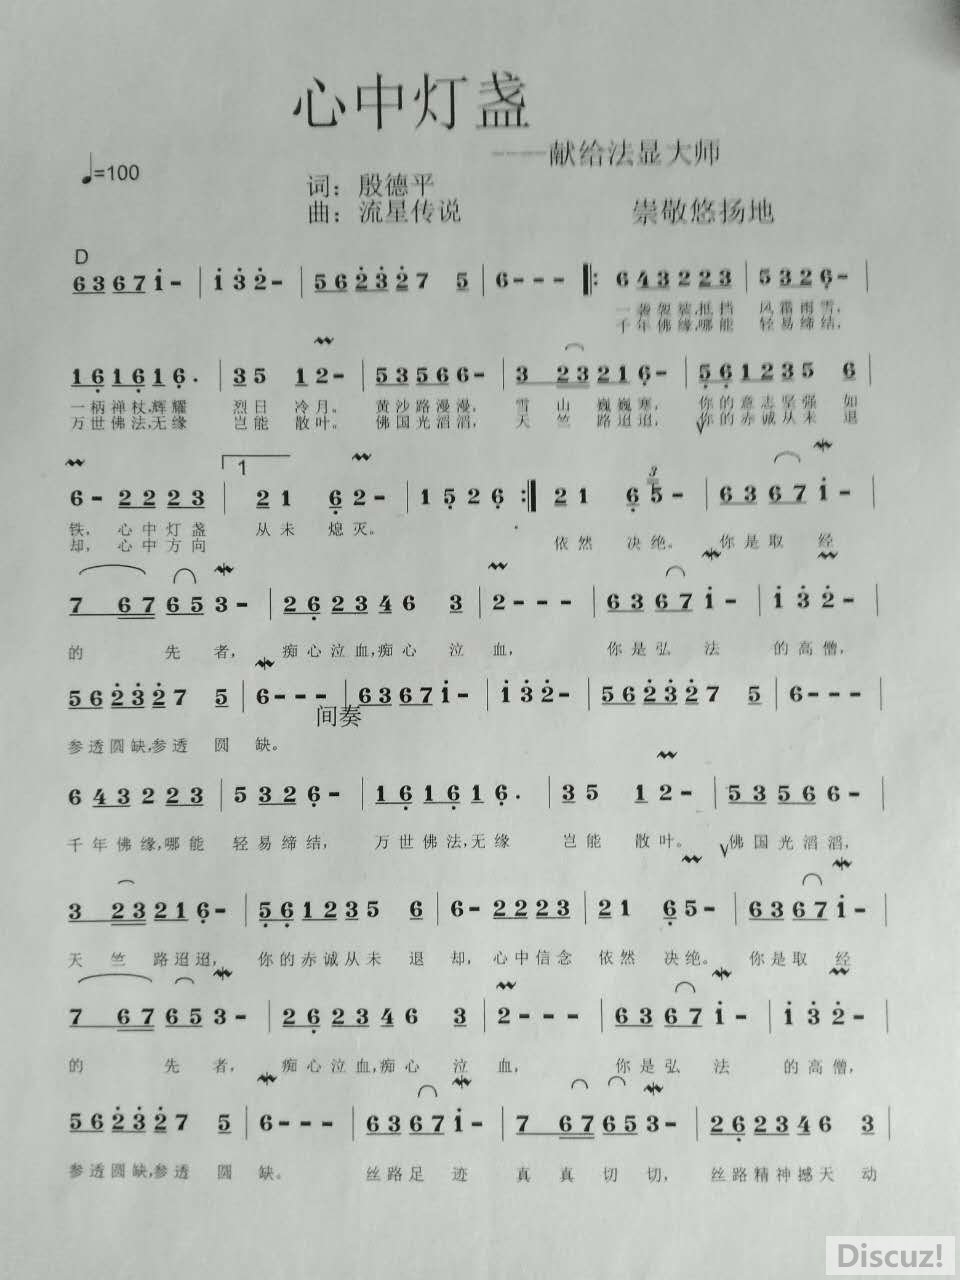 心中灯盏
——献给法显大师
♩=100
词：殷德平
曲：流星传说
崇敬悠扬地
D
6 3 6 7 i - | i 3 2 - | 5 6 2 3 2 7 5 | 6 - - - ‖: 6 4 3 2 2 3 | 5 3 2 6 - |
一袭袈裟,抵挡 风霜雨雪,
千年佛缘,哪能 轻易缔结,
1 6 1 6 1 6 . | 3 5 1 2 - | 5 3 5 6 6 - | 3 2 3 2 1 6 - | 5 6 1 2 3 5 6
一柄禅杖,辉耀 烈日 冷月。 黄沙路漫漫, 雪山 巍巍寒, 你的意志坚强 如
万世佛法,无缘 岂能 散叶。 佛国光滔滔, 天竺 路迢迢, 你的赤诚从未 退
1
3
6 - 2 2 2 3 | 2 1 6 2 - | 1 5 2 6 :‖ 2 1 6 5 - | 6 3 6 7 i - |
铁, 心中灯盏 从未 熄灭。
却, 心中方向 依然 决绝。 你是取 经
7 6 7 6 5 3 - | 2 6 2 3 4 6 3 | 2 - - - | 6 3 6 7 i - | i 3 2 - |
的 先者, 痴心泣血,痴心 泣 血, 你是弘 法 的高僧,
5 6 2 3 2 7 5 | 6 - - - | 6 3 6 7 i - | i 3 2 - | 5 6 2 3 2 7 5 | 6 - - |
间奏
参透圆缺,参透 圆 缺。
6 4 3 2 2 3 | 5 3 2 6 - | 1 6 1 6 1 6 . | 3 5 1 2 - | 5 3 5 6 6 - |
千年佛缘,哪能 轻易缔结, 万世佛法,无缘 岂能 散叶。 佛国光滔滔,
3 2 3 2 1 6 - | 5 6 1 2 3 5 6 | 6 - 2 2 2 3 | 2 1 6 5 - | 6 3 6 7 i - |
天竺 路迢迢, 你的赤诚从未 退 却, 心中信念 依然 决绝。 你是取 经
7 6 7 6 5 3 - | 2 6 2 3 4 6 3 | 2 - - - | 6 3 6 7 i - | i 3 2 - |
的 先者, 痴心泣血,痴心 泣 血, 你是弘 法 的高僧,
5 6 2 3 2 7 5 | 6 - - - | 6 3 6 7 i - | 7 6 7 6 5 3 - | 2 6 2 3 4 6 3 |
参透圆缺,参透 圆 缺。 丝路足 迹 真真切切, 丝路精神撼天动
Discuz!